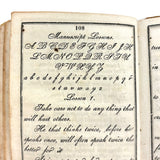 108
Manuscript Lessons.
A B C D E F G H I J K
L M N O P Q R S T U
V W X Y Z
a b c d e f g h i j k l m n o p q r
s t u v w x y z
Lesson 1.
Take care not to do any thing that
will hurt others.
He that thinks twice, before he
speaks once, will often speak twice the
better for it.